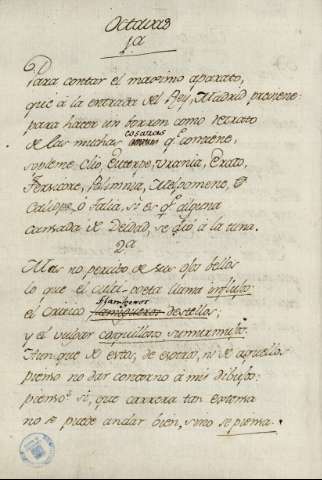 Octavas
1ª
Para contar el maximo aparato,
que â la entrada del Rey, Madrid previene:
para hacer un borron como retrato
cosazas
de las muchas qe contiene,
sopleme Clio, Euterpe, Urania, Erato,
Tersicore, Polimnia, Melpomene,
Caliope, ô Talia, si es qe alguna
cansada de Deidad, se dió â la tuna.
2ª
Mas no permito de sus ojos bellos
lo que el culti-poeta llama influjo:
flamigeros
el critico destellos;
y el vulgar
Aunque de estos, de esotros, ni de aquellos
pienso no dar contorno â mis dibujos:
pienso si, que carrera tan extensa
no se puede andar bien, sino se piensa.